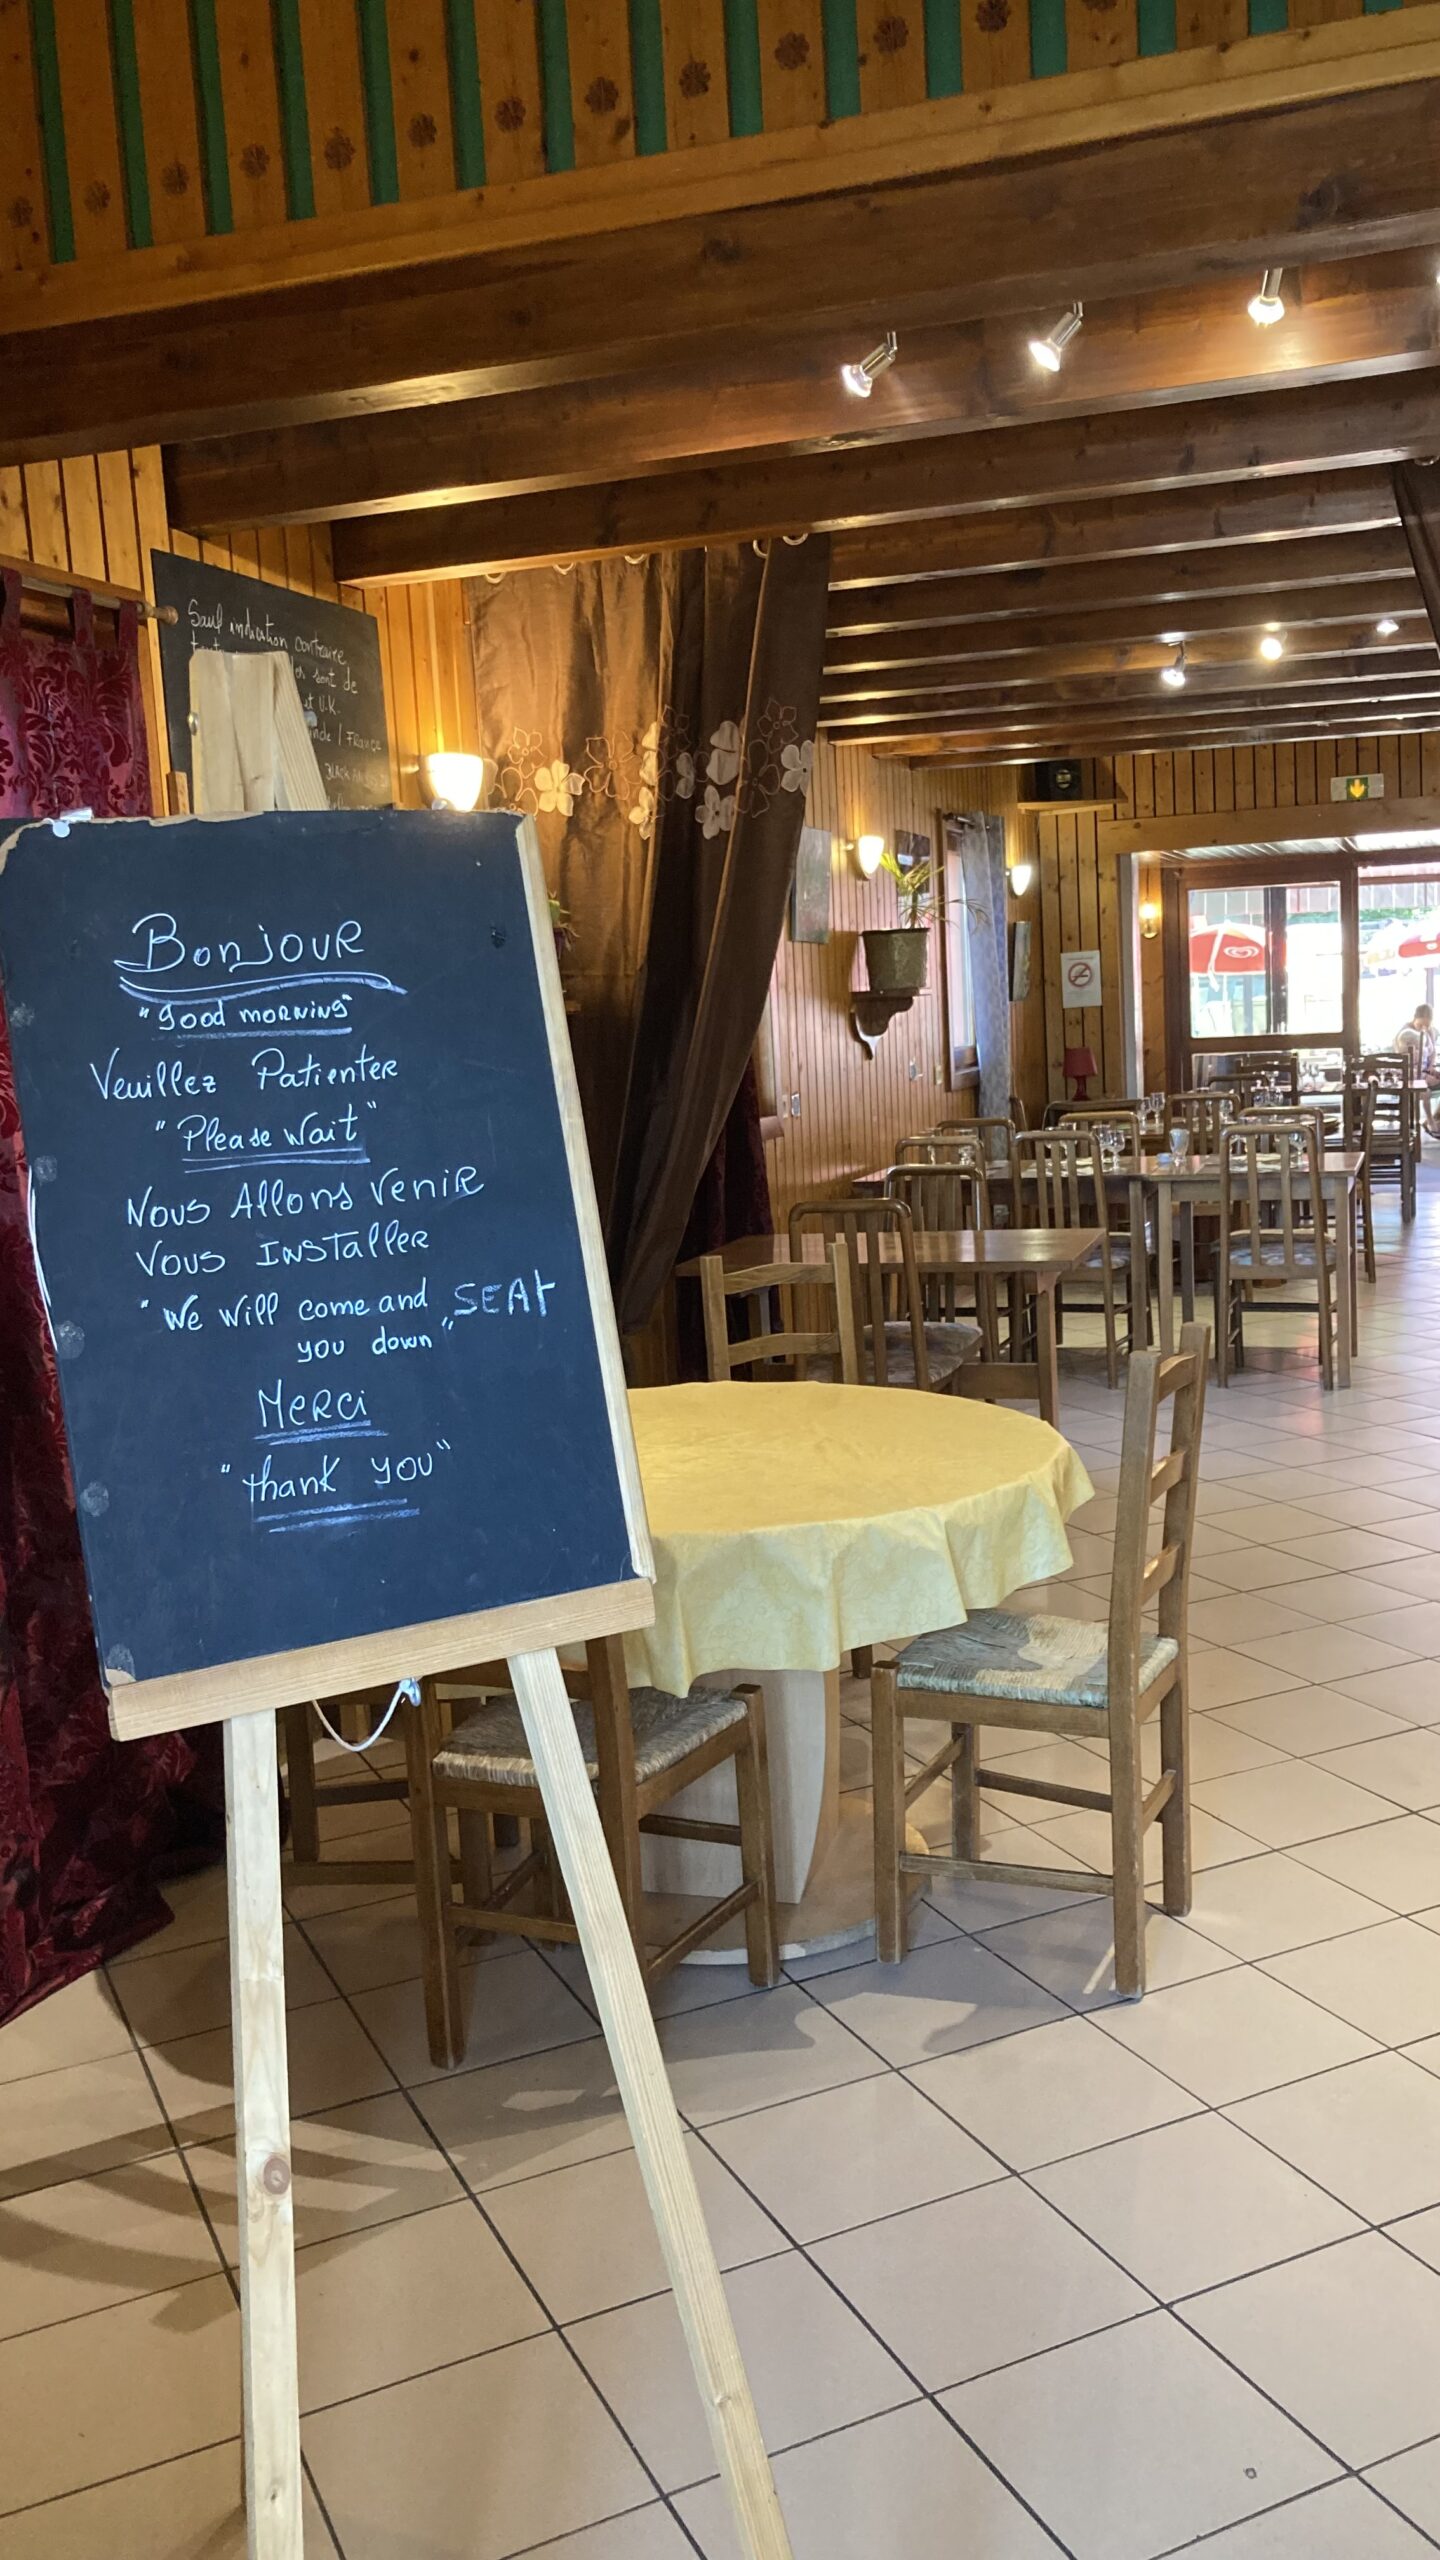 Sauf indication contraire
sont de
et U.K.
/ France
BLACK
Bonjour
"good morning"
Veuillez Patienter
"Please Wait"
Nous Allons Venir
Vous Installer
"We will come and SEAT
you down"
Merci
"thank you"